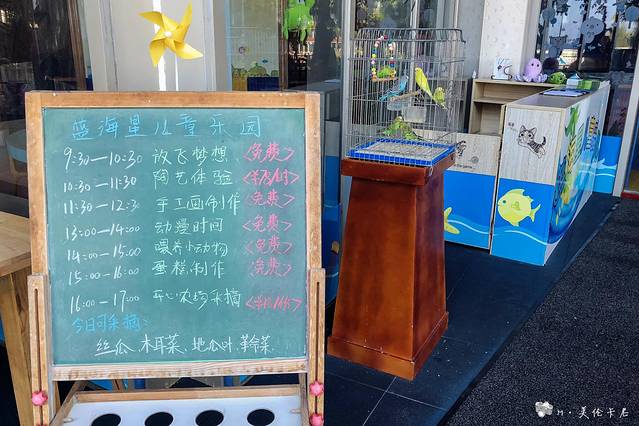 蓝海星儿童乐园
9:30—10:30 放飞梦想 <免费>
10:30—11:30 陶艺体验
11:30—12:30 手工画制作 <免费>
13:00—14:00 动漫时间 <免费>
14:00—15:00 喂养小动物 <免费>
15:00—16:00 蛋糕制作 免费
16:00—17:00 开心农场采摘
今日可采摘:
丝瓜、木耳菜、地瓜叶、革命菜.
M·美伦卡若